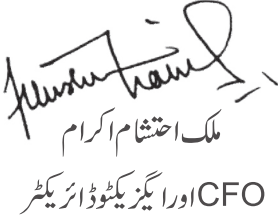 ملک احتشام اکرام
CFO اور ایگزیکٹو ڈائریکٹر